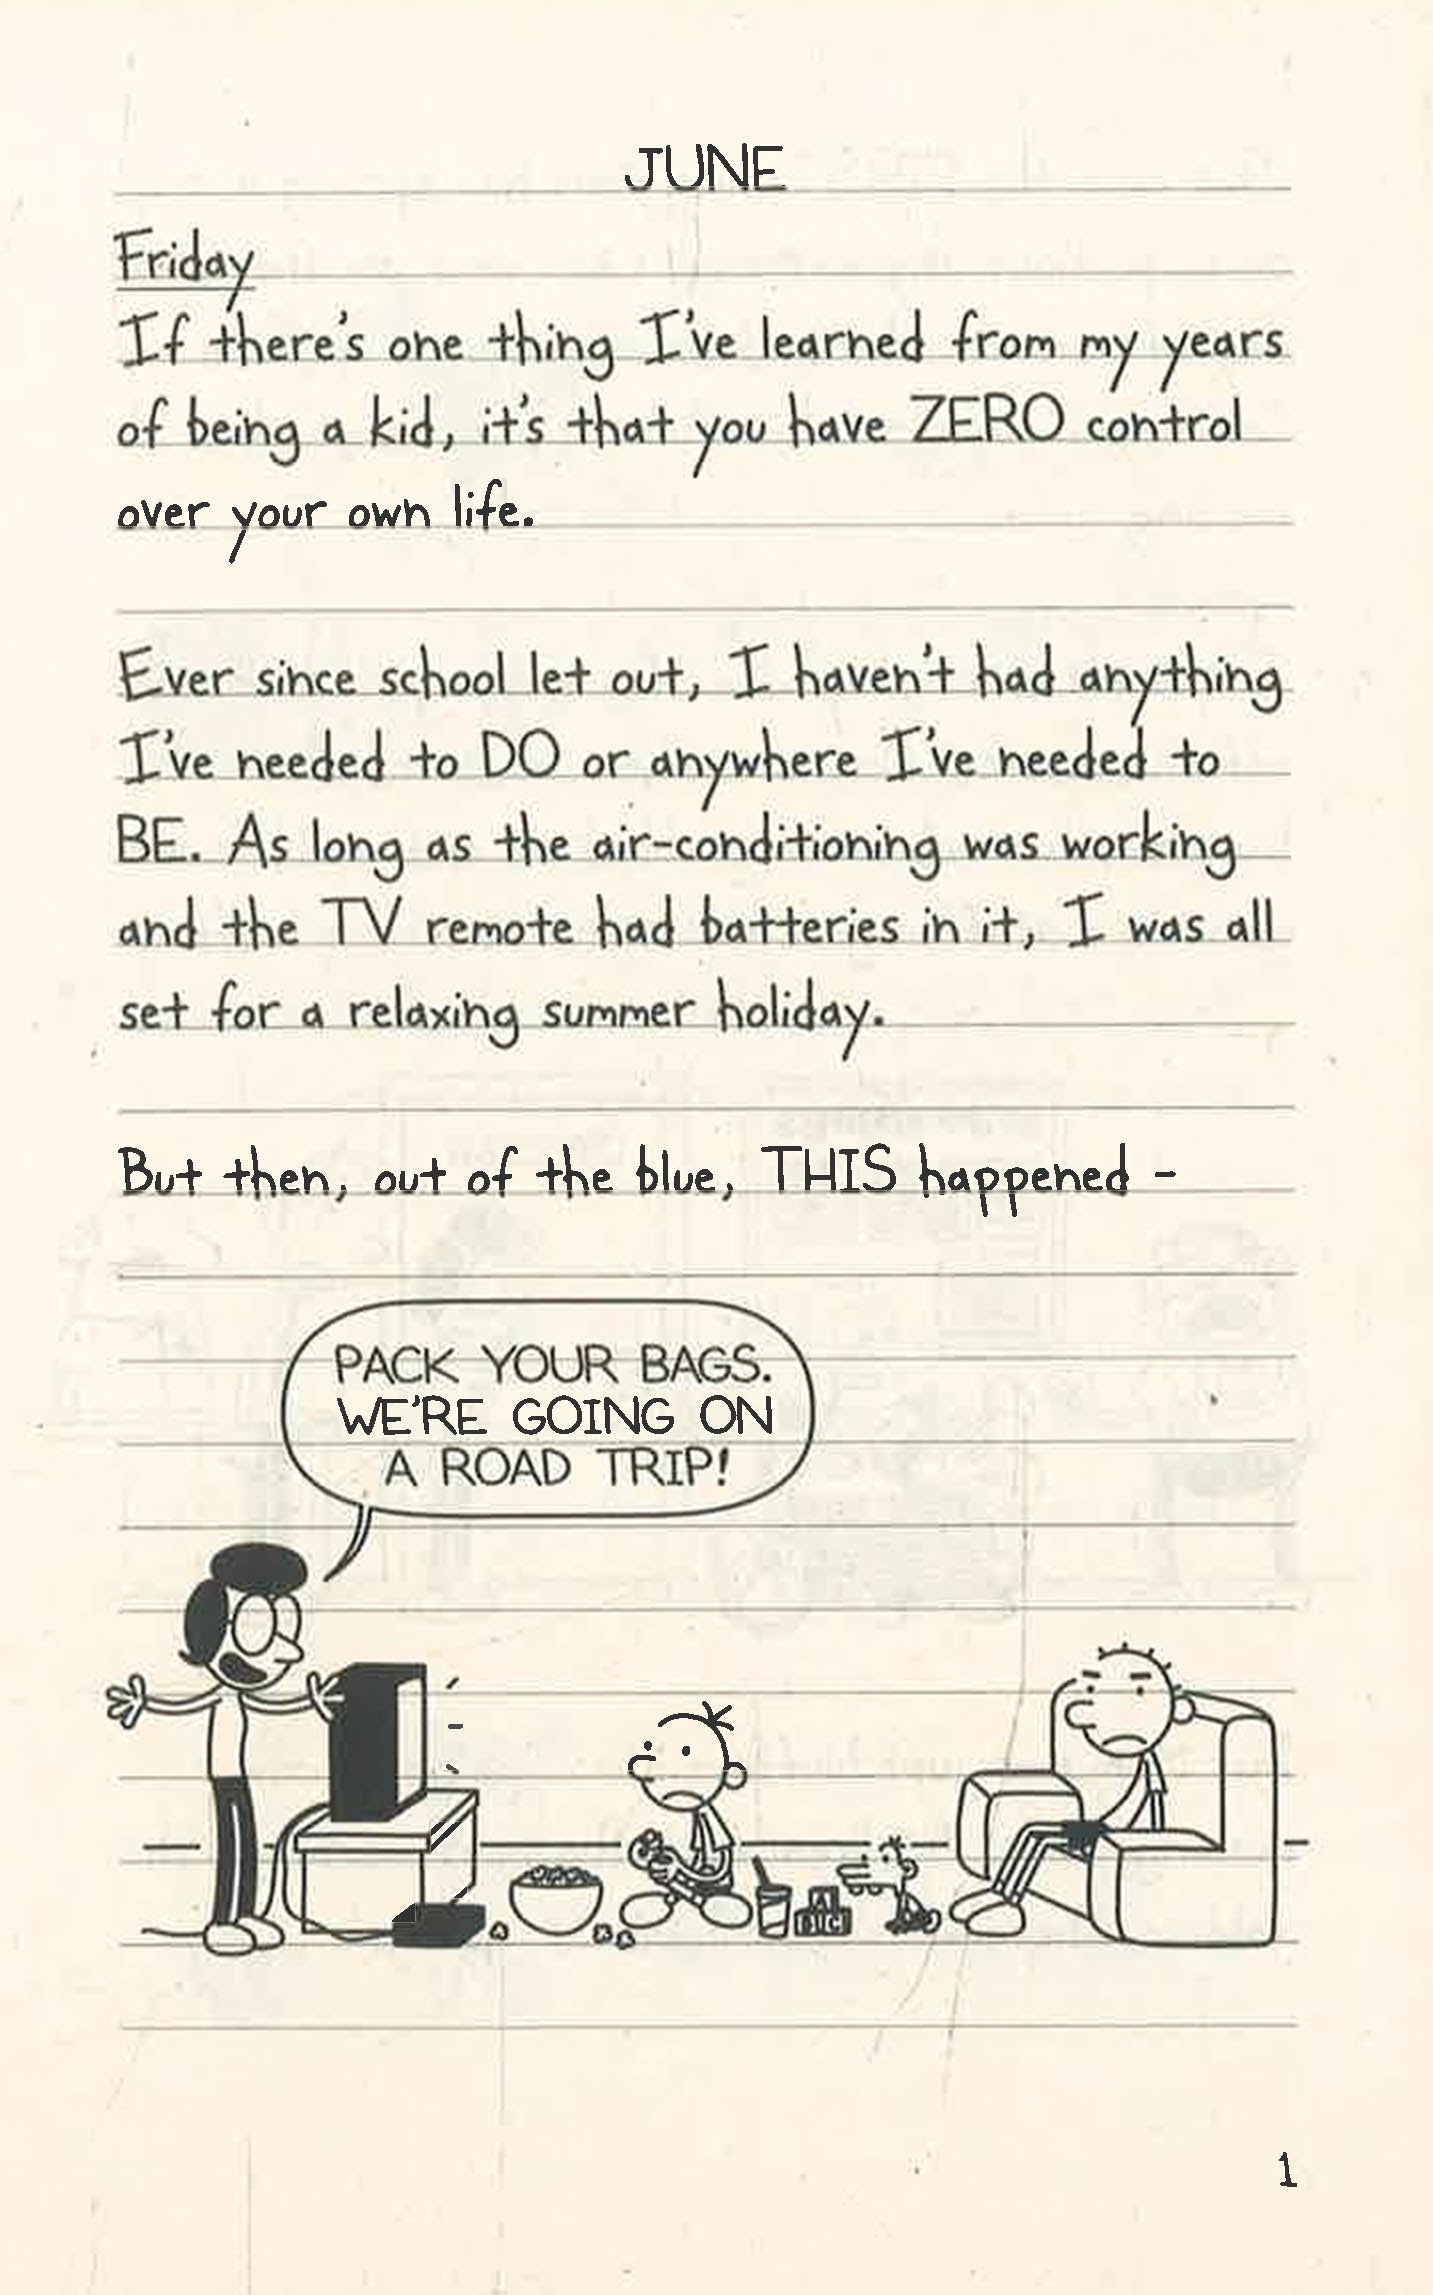 JUNE
Friday
If there's one thing I've learned from my years
of being a kid, it's that you have ZERO control
over your own life.
Ever since school let out, I haven't had anything
I've needed to DO or anywhere I've needed to
BE. As long as the air-conditioning was working
and the TV remote had batteries in it, I was all
set for a relaxing summer holiday.
But then, out of the blue, THIS happened -
PACK YOUR BAGS.
WE'RE GOING ON
A ROAD TRIP!
A
B C
1